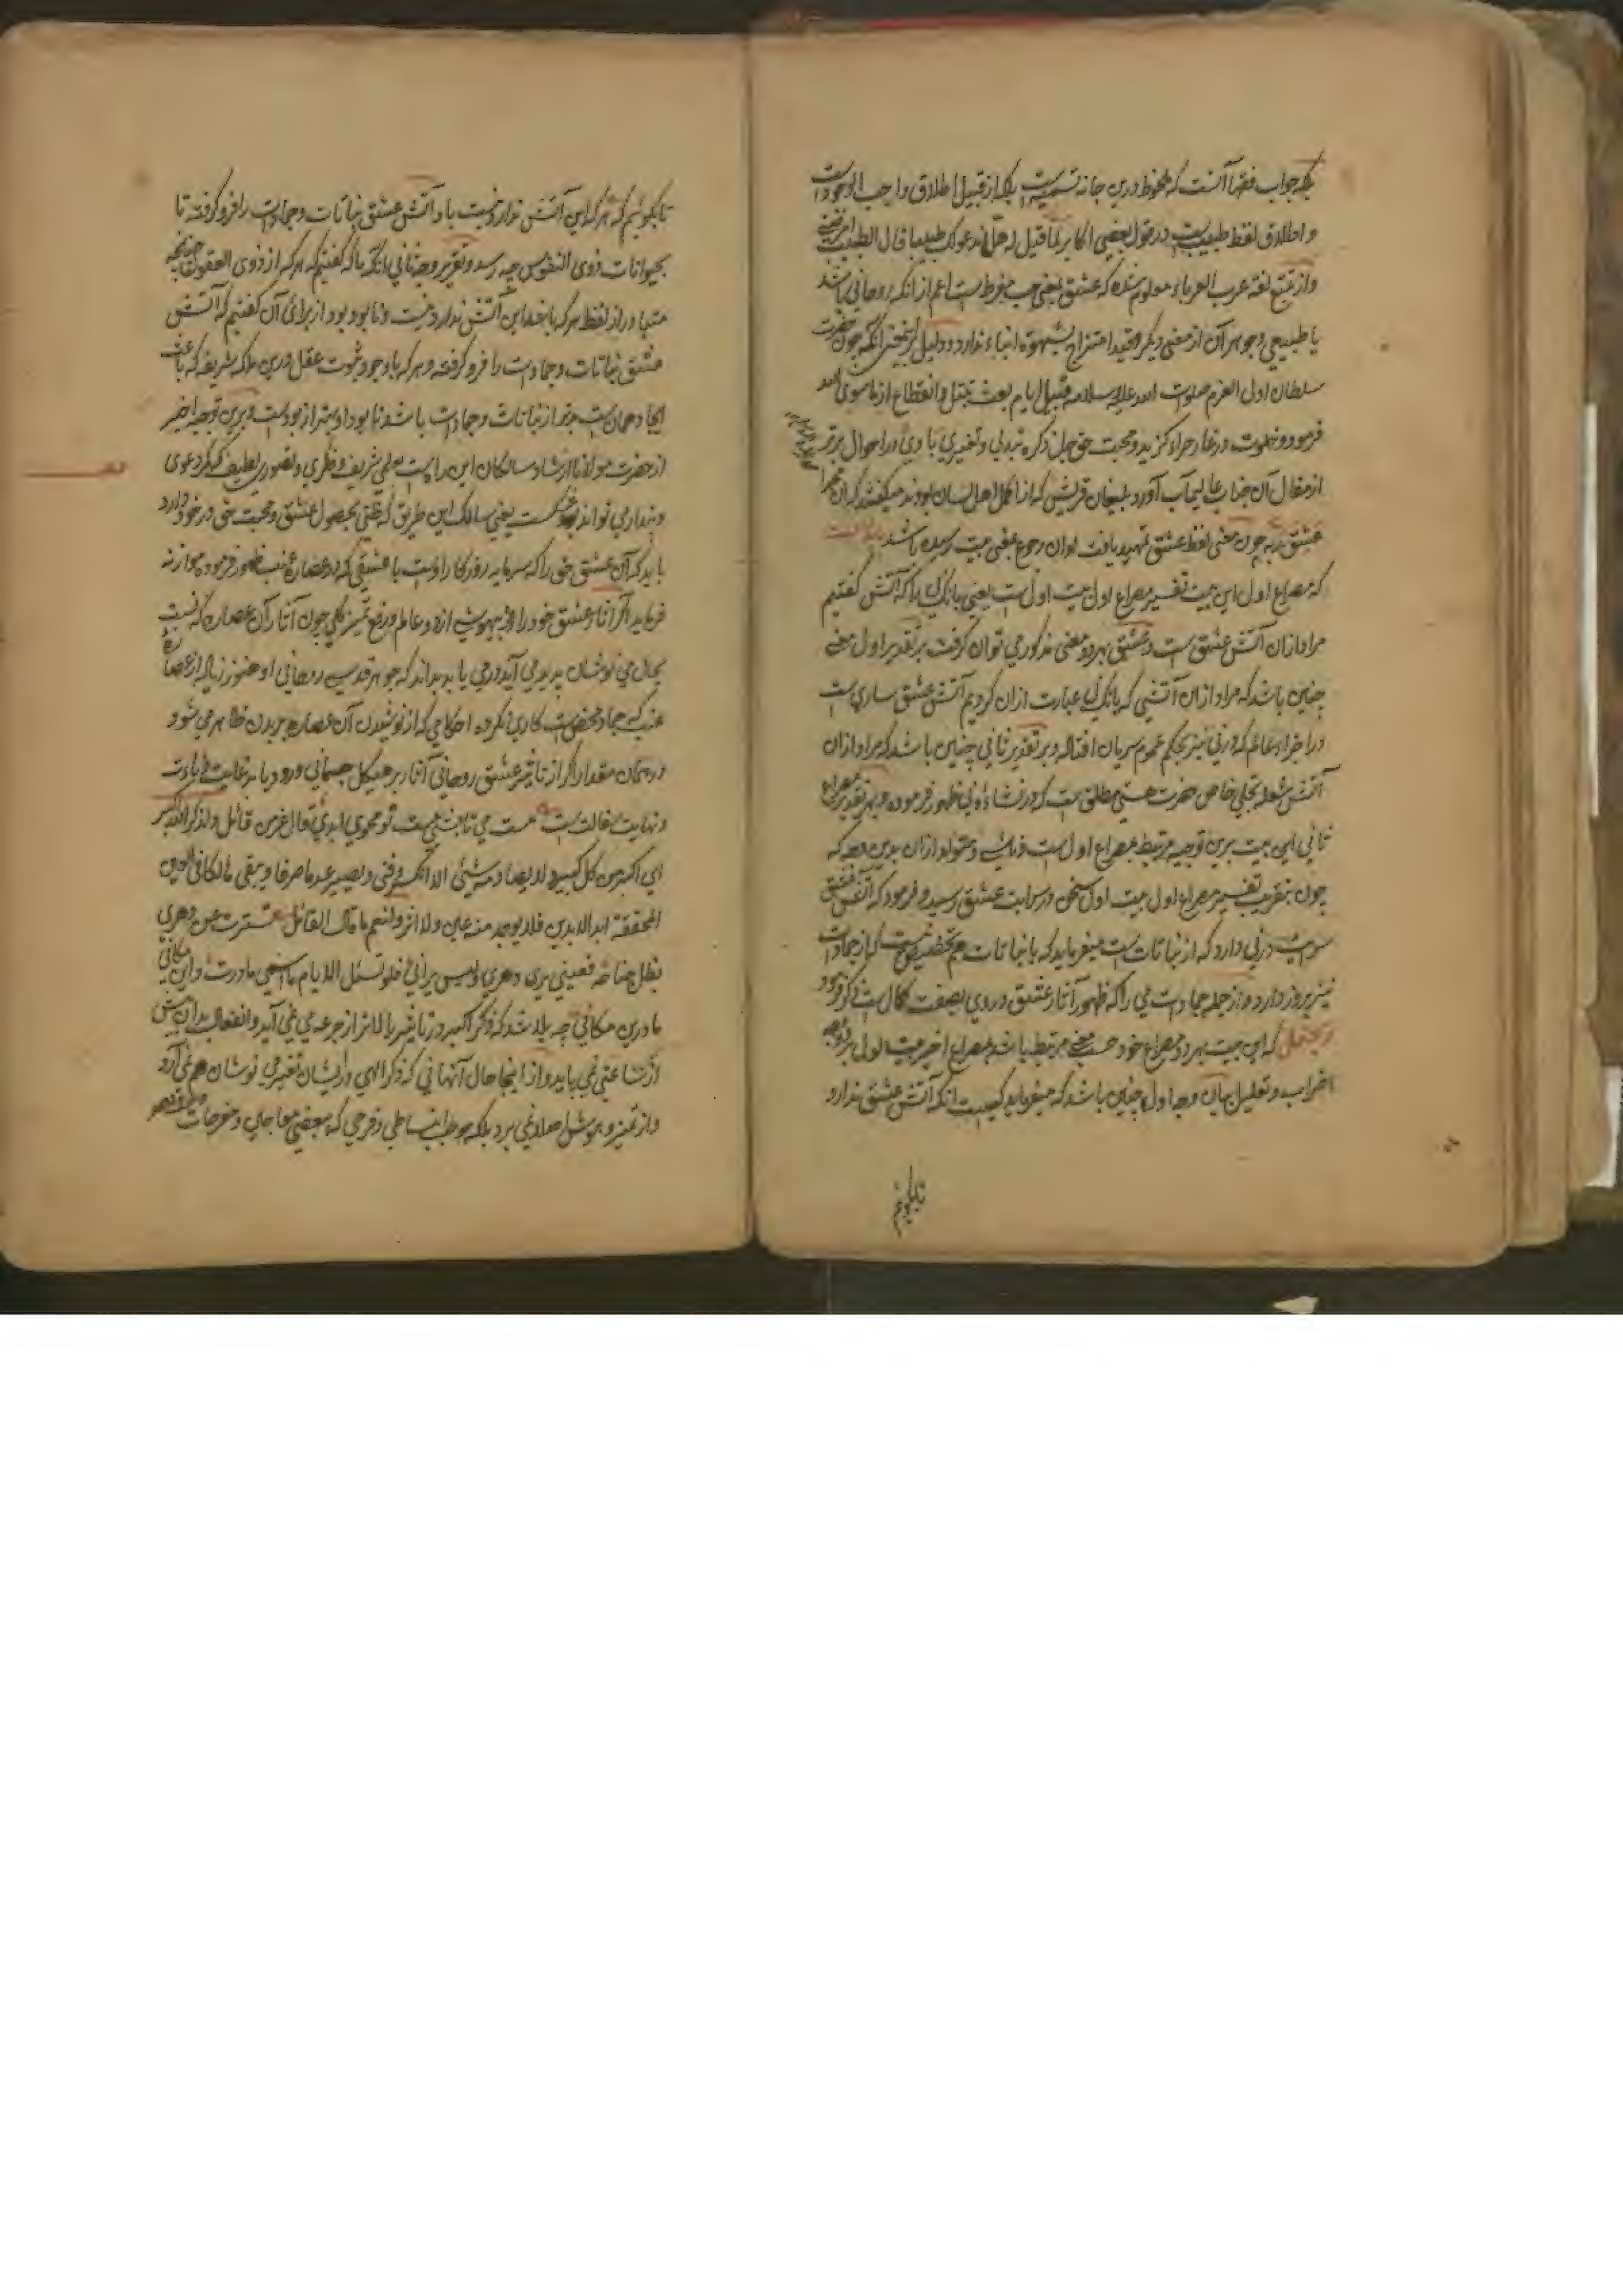 بلکه جواب فقها آنست که ملحوظ درین جا نه تسمیه است بلکه از قبیل اطلاق واجب الوجود است
و اطلاق لفظ طبیب است در قول بعضی اکابر لما قیل له هل ندعو لک طبیبا قال الطبیب امرضنی
و از تتبع لغة عرب العرباء معلوم شده که عشق بمعنی حب مفرط است اعم از آنکه روحانی باشد
یا طبیعی و جوهر آن از معنی دیگر و قید امتزاج بشهوة انباء ندارد و دلیل برین معنی آنکه چون حضرت
سلطان اولی العزم صلوات الله علیه و سلامه قبیل ایام بعث تبتل و انقطاع از ماسوی الله
فرمود و خلوت در غار حراء گزید و محبت حق جل ذکره تبدلی و تغییری بادی در احوال برتر
از مقال آن جناب عالیمآب آورد بلیغان قریش که اکمل اهل لسان بودند میگفتند که ان محمدا
عشق ربه چون معنی لفظ عشق تمهید یافت اوان رجوع بمعنی بیت رسیده باشد
که مصراع اول این بیت تفسیر مصراع اول بیت اول است یعنی بانگ نی را که آتش گفتیم
مراد از آن آتش عشق است و عشق بهر دو معنی مذکور می توان گرفت بر تقدیر اول معنی
چنین باشد که مراد از آن آتشی که بانگ نی عبارت از آن کردیم آتش عشق ساری است
در اجزاء عالم که در نی نیز بحکم عموم سریان افتاده و بر تقدیر ثانی چنین باشد که مراد از آن
آتش شعله تجلی خاص حضرت هستی مطلق است که در نشاءه نی ظهور فرموده و بهر تقدیر مصراع
ثانی این بیت برین توجیه مرتبط بمصراع اول است و متولد از آن بدین وجه که
چون بتقریب تفسیر مصراع اول بیت اول سخن در سرایت عشق رسید و فرمود که آتش عشق
سرایت در نی دارد که از نباتات است میفرماید که با نباتات هم تخصیص نیست که از جمادات
نیز بروز دارد و از جمله جمادات می را که ظهور آثار عشق در وی بصفت کمال است ذکر فرمود
و یحتمل که این بیت بهر دو مصراع خود حسب معنی مرتبط باشد بمصراع اخیر بیت اول بر وجه
اضراب و تعلیل بیان وجه اول چنین باشد که میفرماید کیست آنکه آتش عشق ندارد
تا بگوئیم
تا بگوئیم که هر که این آتش ندارد نیست باد آتش عشق نباتات و جمادات را فرو گرفته تا
بحیوانات ذوی النفوس چه رسد و تقریر وجه ثانی آنکه ما که گفتیم که هر که از ذوی العقول چنانچه
متبادر از لفظ هر که باشد این آتش ندارد نیست و نابود بود از برای آن گفتیم که آتش
عشق نباتات و جمادات را فرو گرفته و هر که با وجود ثبوت عقل درین ملکه شریفه که باعث
ایجاد جهان است بدتر از نباتات و جمادات باشد نابود او بهتر از بود است و برین توجیه اخیر
از حضرت مولانا ارشاد سالکان این راه است بعلمی شریف و نظری و تصوری لطیف که دعوی
و پندار می تواند شکست یعنی سالک این طریق که ظنی بحصول عشق و محبت حق در خود دارد
باید که آن عشق حق را که سرمایه روزگار اوست با عشقی که در عصاره عنب ظهور فرموده موازنه
فرماید اگر آثار عشق خود را در بیهوشی از دو عالم و رفع تمیز کلی چون آثار آن عصاره که نسبت
بحال می نوشان پدید می آید در می یابد بداند که جوهر قدسی روحانی او هنوز زیاده از عصاره
عنب که جماد محض است کاری نکرده احکامی که از نوشیدن آن عصاره بر بدن ظاهر می شود
در همان مقدار اگر از تاثیر عشق روحانی آثار بر هیکل جسمانی ورود یابد غایت بلادت
و نهایت بطالت است مست می تا بشی است تو محوی ابدی قال عز من قائل و لذکر الله اکبر
ای اکبر من کل کبیر لا یصادمه شئ الا انکسر و فنی و یصیر عدما صرفا و یبقی مالکا فی العین
المحققة ابد الابدین فلا یوجد منه عین و لا اثر و لنعم ما قال القائل تسترت عن دهری
بظل جناحه فعینی یری دهری و لیس یرانی فلو تسئل الایام ما اسمی ما درت و این مکانی
ما درین مکانی چه بلا شد که ذکر اکبر در تاثیر بالاتر از جرعه می نمی آید و انفعال بدان بیش
از نشاء عنبی نمی یابد و از اینجا حال آنهائی که ذکر الهی در ایشان تغییر می نوشان هم نمی آرد
و از تمیز و هوش اصلا نمی برد بلکه موجب انبساطی و فرحی که بعضی معاجین و مفرحات